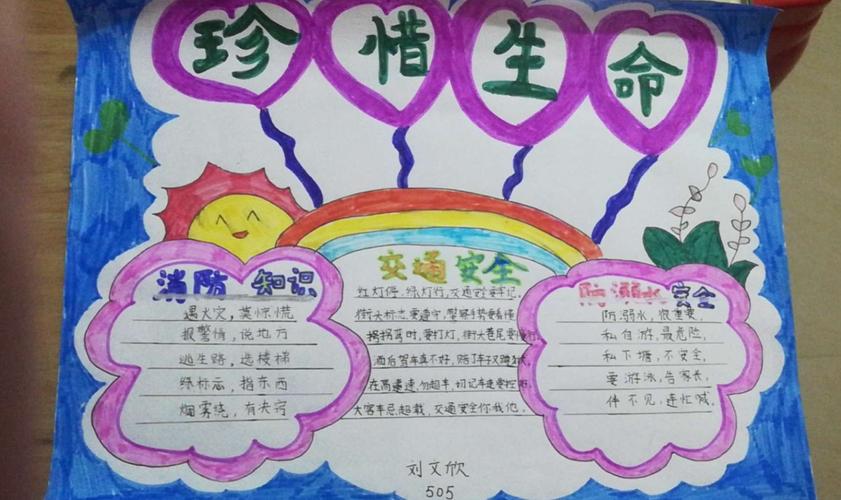 珍惜生命
消防知识
遇火灾，莫惊慌
报警情，说地方
逃生路，选楼梯
绿标志，指东西
烟雾绕，有夫守
交通安全
红灯停，绿灯行，交通 要牢记。
街头标志要遵守，警察手势要看懂
拐弯时，要打灯，街头巷尾要慢行
酒后驾车真不好，赔了车又蹲大
在高速，勿超车，切记车速要控
大客车忌超载，交通安全你我他。
防溺水安全
防溺水，很重要，
私自游，最危险，
私下塘，不安全，
要游泳，告家长，
伴不见，连忙喊。
刘文欣
505